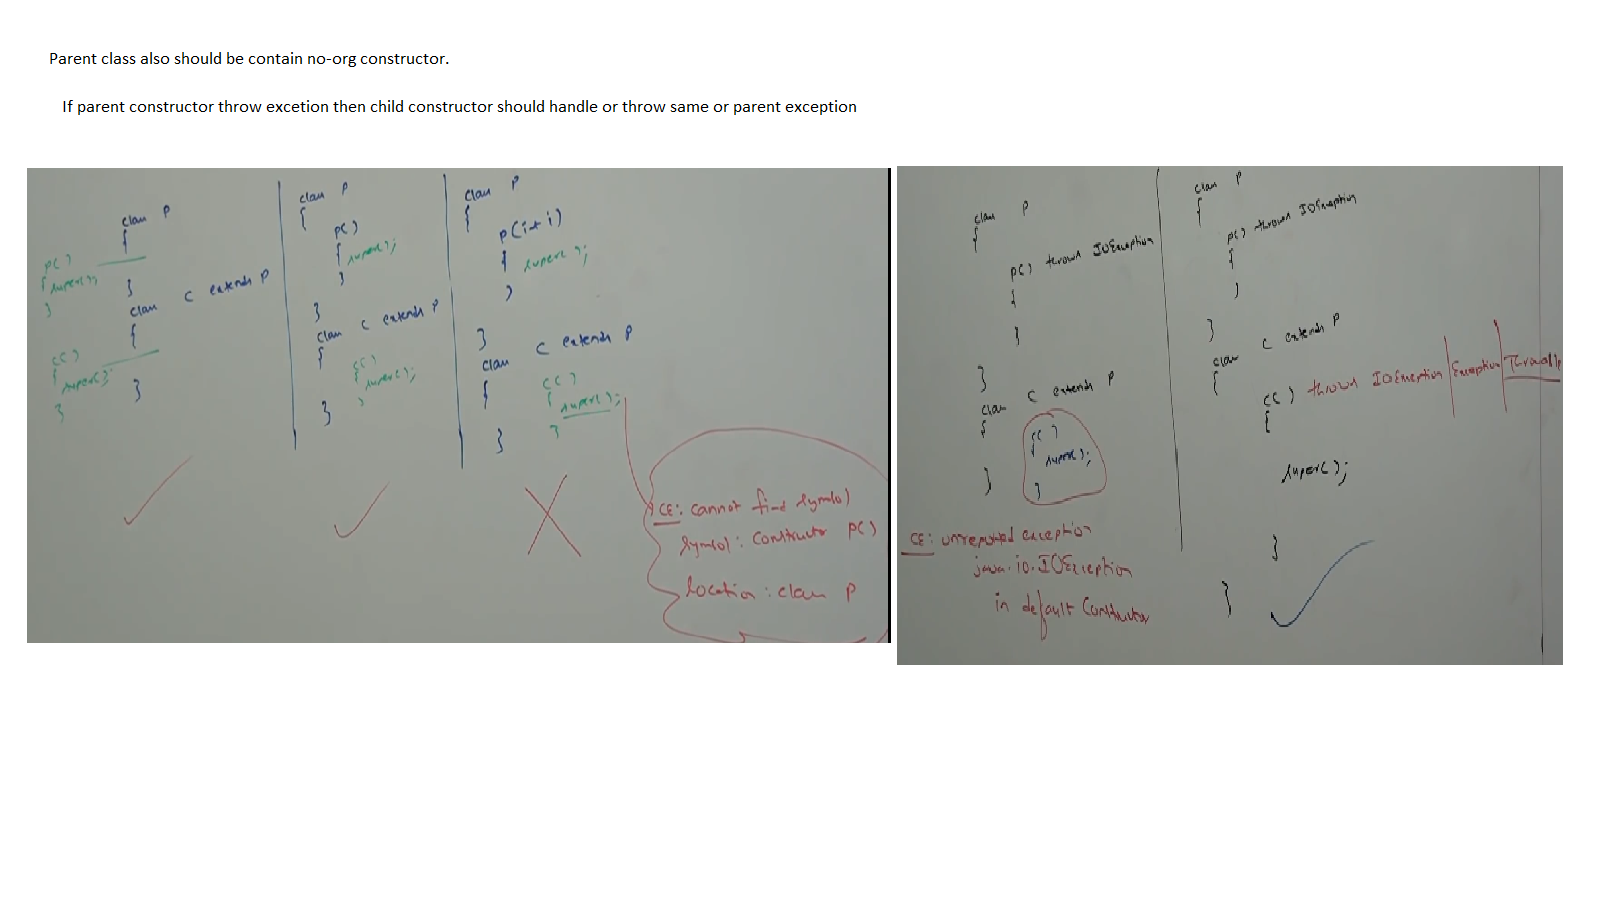 Parent class also should be contain no-org constructor.
If parent constructor throw excetion then child constructor should handle or throw same or parent exception
class P
{
P()
{ super();
}
}
class C extends P
{
C()
{ super();
}
}
class P
{
P()
{ super();
}
}
class C extends P
{
C()
{ super();
}
}
class P
{
P(int i)
{ super();
}
}
class C extends P
{
C()
{ super();
}
}
CE: cannot find symbol
symbol: constructor P()
location: class P
class P
{
P() throws IOException
{
}
}
class C extends P
{
C()
{
super();
}
}
CE: unreported exception
java.io.IOException
in default constructor
class P
{
P() throws IOException
{
}
}
class C extends P
{
C() throws IOException | Exception | Throwable
{
super();
}
}